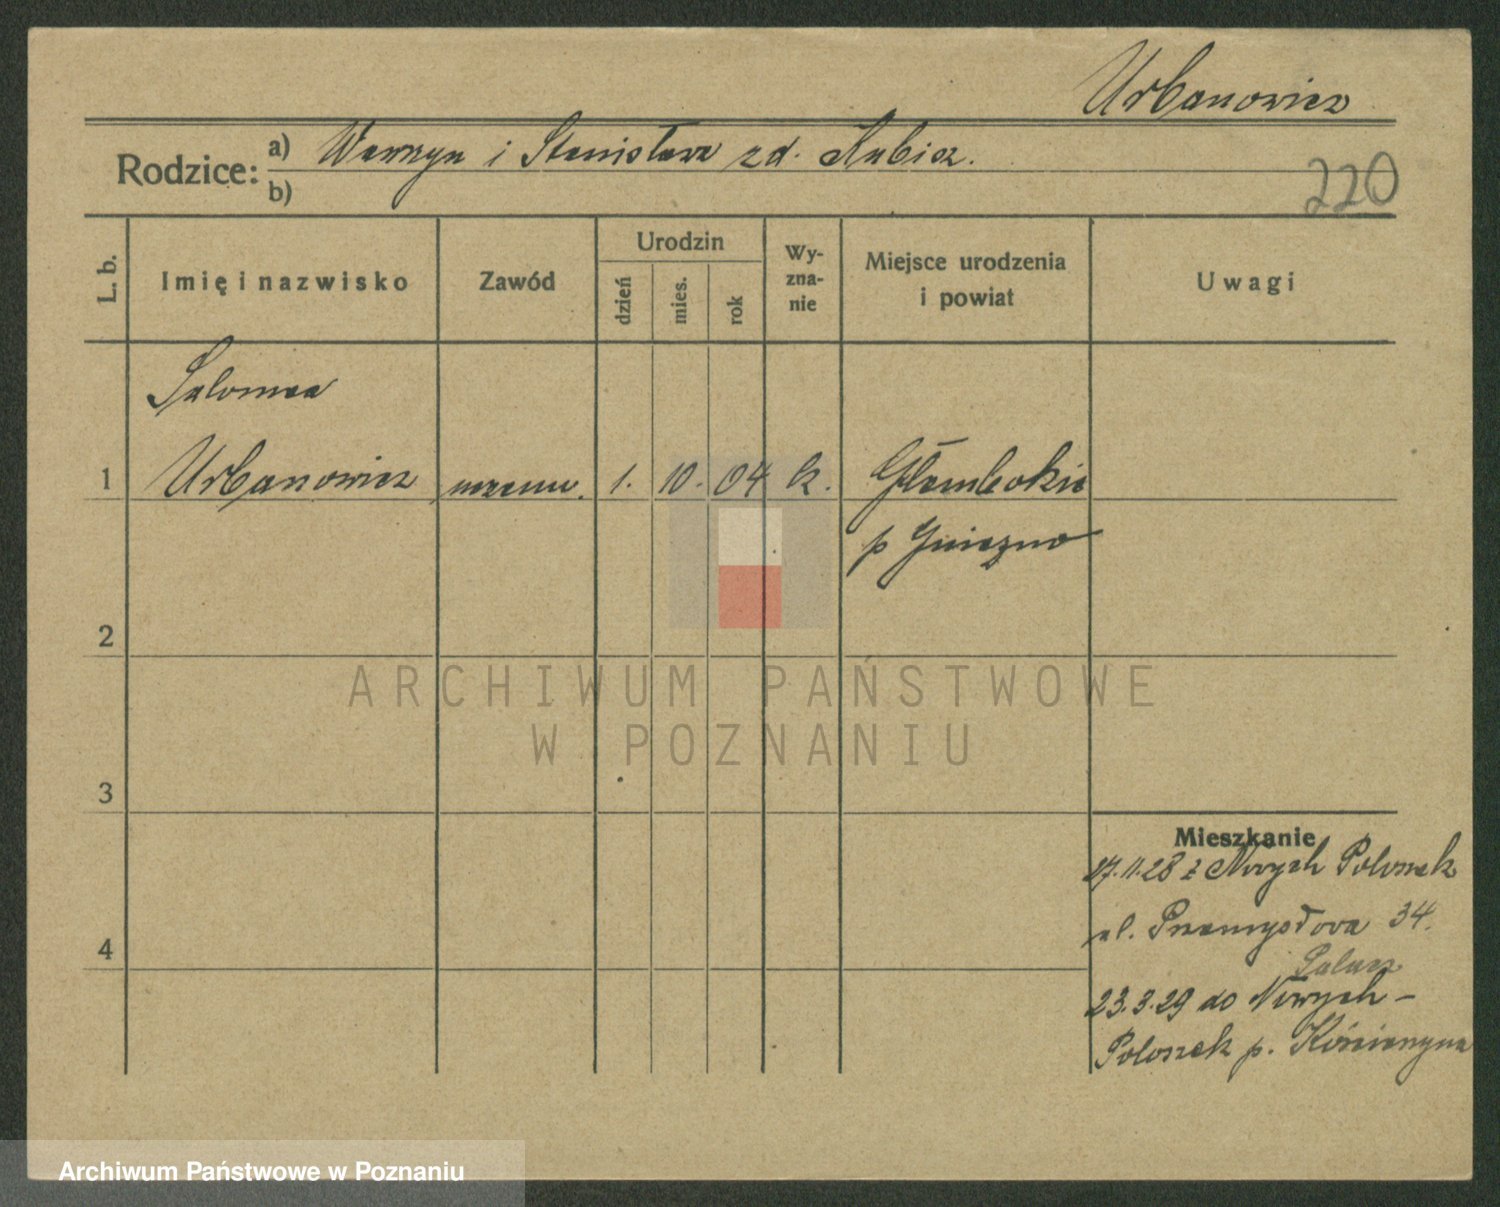 Urbanowicz
Rodzice: a) Wawrzyn i Stanisława zd. Kubisz.
b)
220
L. b.
Imię i nazwisko
Zawód
Urodzin
dzień
mies.
rok
Wy-
zna-
nie
Miejsce urodzenia
i powiat
Uwagi
Salomea
1 Urbanowicz uczenn. 1. 10. 04 k. Głembokie
p Gniezno
2
ARCHIWUM PAŃSTWOWE
W POZNANIU
3
Mieszkanie
17.11.28 z Nowych Polaszek
ul. Przemysłowa 34.
4
23.3.29 do Nowych-
Polaszek p. Kościerzyna
Archiwum Państwowe w Poznaniu